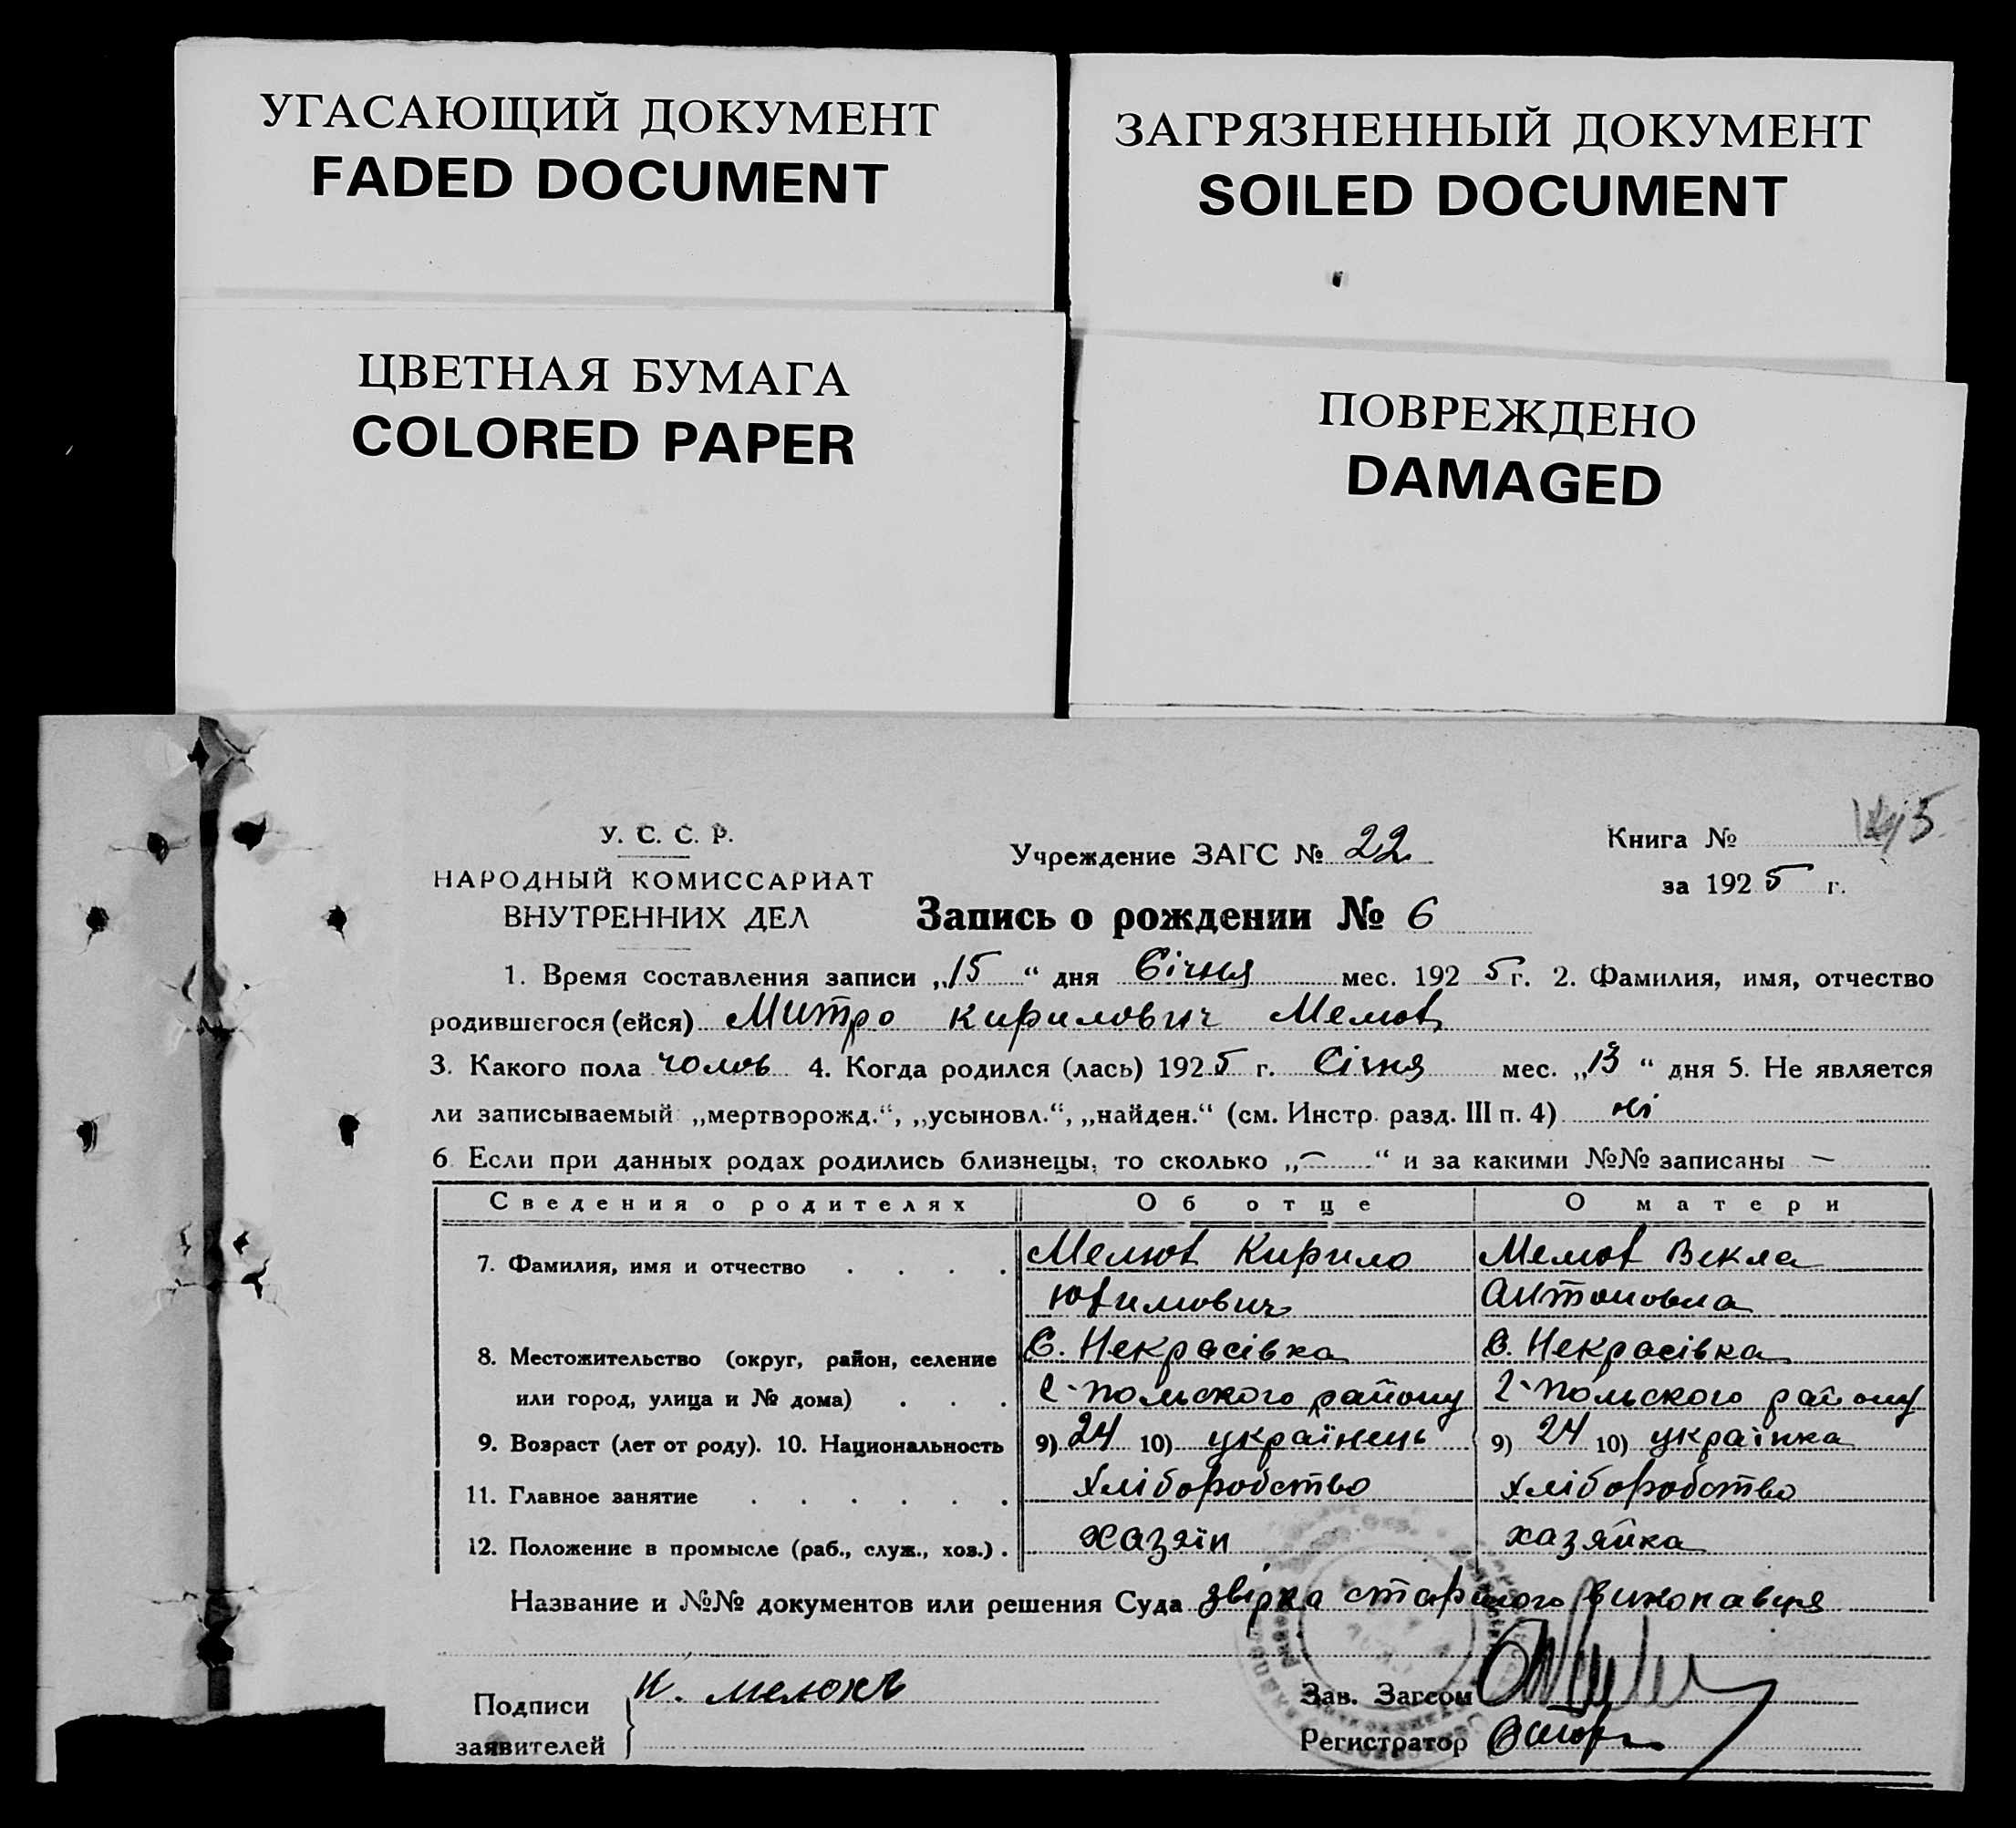 УГАСАЮЩИЙ ДОКУМЕНТ
FADED DOCUMENT
ЗАГРЯЗНЕННЫЙ ДОКУМЕНТ
SOILED DOCUMENT
ЦВЕТНАЯ БУМАГА
COLORED PAPER
ПОВРЕЖДЕНО
DAMAGED
У. С. С. Р.
НАРОДНЫЙ КОМИССАРИАТ
ВНУТРЕННИХ ДЕЛ
Учреждение ЗАГС № 22
Книга №
за 1925 г.
Запись о рождении № 6
1. Время составления записи „15“ дня Січня мес. 1925 г. 2. Фамилия, имя, отчество
родившегося (ейся) Митро Кирилович
3. Какого пола чолов 4. Когда родился (лась) 1925 г. Січня мес. „13“ дня 5. Не является
ли записываемый „мертворожд.“, „усыновл.“, „найден.“ (см. Инстр. разд. III п. 4) ні
6 Если при данных родах родились близнецы, то сколько „—“ и за какими №№ записаны —
Сведения о родителях Об отце О матери
7. Фамилия, имя и отчество . . . . Кирило Векла
Юхимович Антоновна
8. Местожительство (округ, район, селение С. Некрасівка С. Некрасівка
или город, улица и № дома) . . . Г-Польского району Г-Польского району
9. Возраст (лет от роду). 10. Национальность 9) 24 10) українець 9) 24 10) українка
11. Главное занятие . . . . . . Хліборобство Хліборобство
12. Положение в промысле (раб., служ., хоз.) . хазяїн хазяйка
Название и №№ документов или решения Суда звірка старшого виконавця
Подписи К.
заявителей
Зав. Загсом
Регистратор